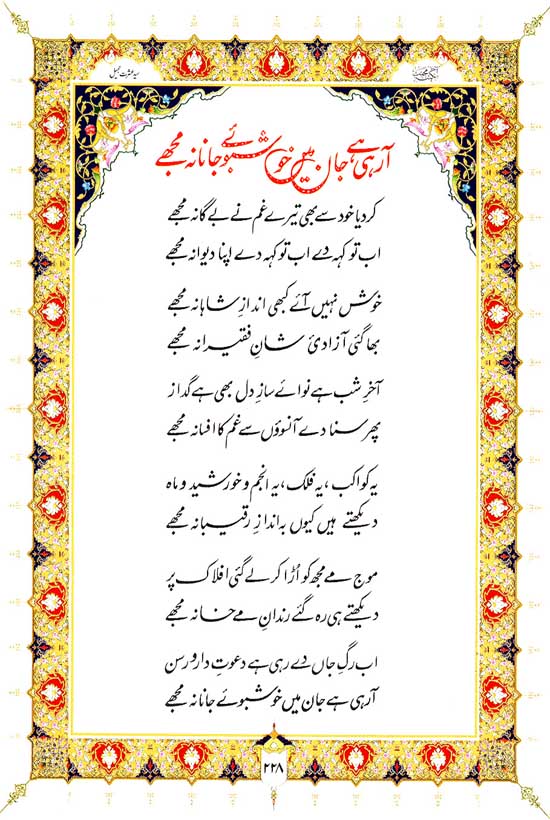 آ رہی ہے جان میں خوشبوئے جانانہ مجھے
کر دیا خود سے بھی تیرے غم نے بے گانہ مجھے
اب تو کہہ دے اب تو کہہ دے اپنا دیوانہ مجھے
خوش نہیں آئے کبھی اندازِ شاہانہ مجھے
بھا گئی آزادیٔ شانِ فقیرانہ مجھے
آخرِ شب ہے نوائے سازِ دل بھی ہے گداز
پھر سنا دے آنسوؤں سے غم کا افسانہ مجھے
یہ کواکب، یہ فلک، یہ انجم و خورشید و ماہ
دیکھتے ہیں کیوں بہ اندازِ رقیبانہ مجھے
موجِ مے مجھ کو اُڑا کر لے گئی افلاک پر
دیکھتے ہی رہ گئے رندانِ مے خانہ مجھے
اب رگِ جاں دے رہی ہے دعوتِ دار و رسن
آ رہی ہے جان میں خوشبوئے جانانہ مجھے
۲۲۸